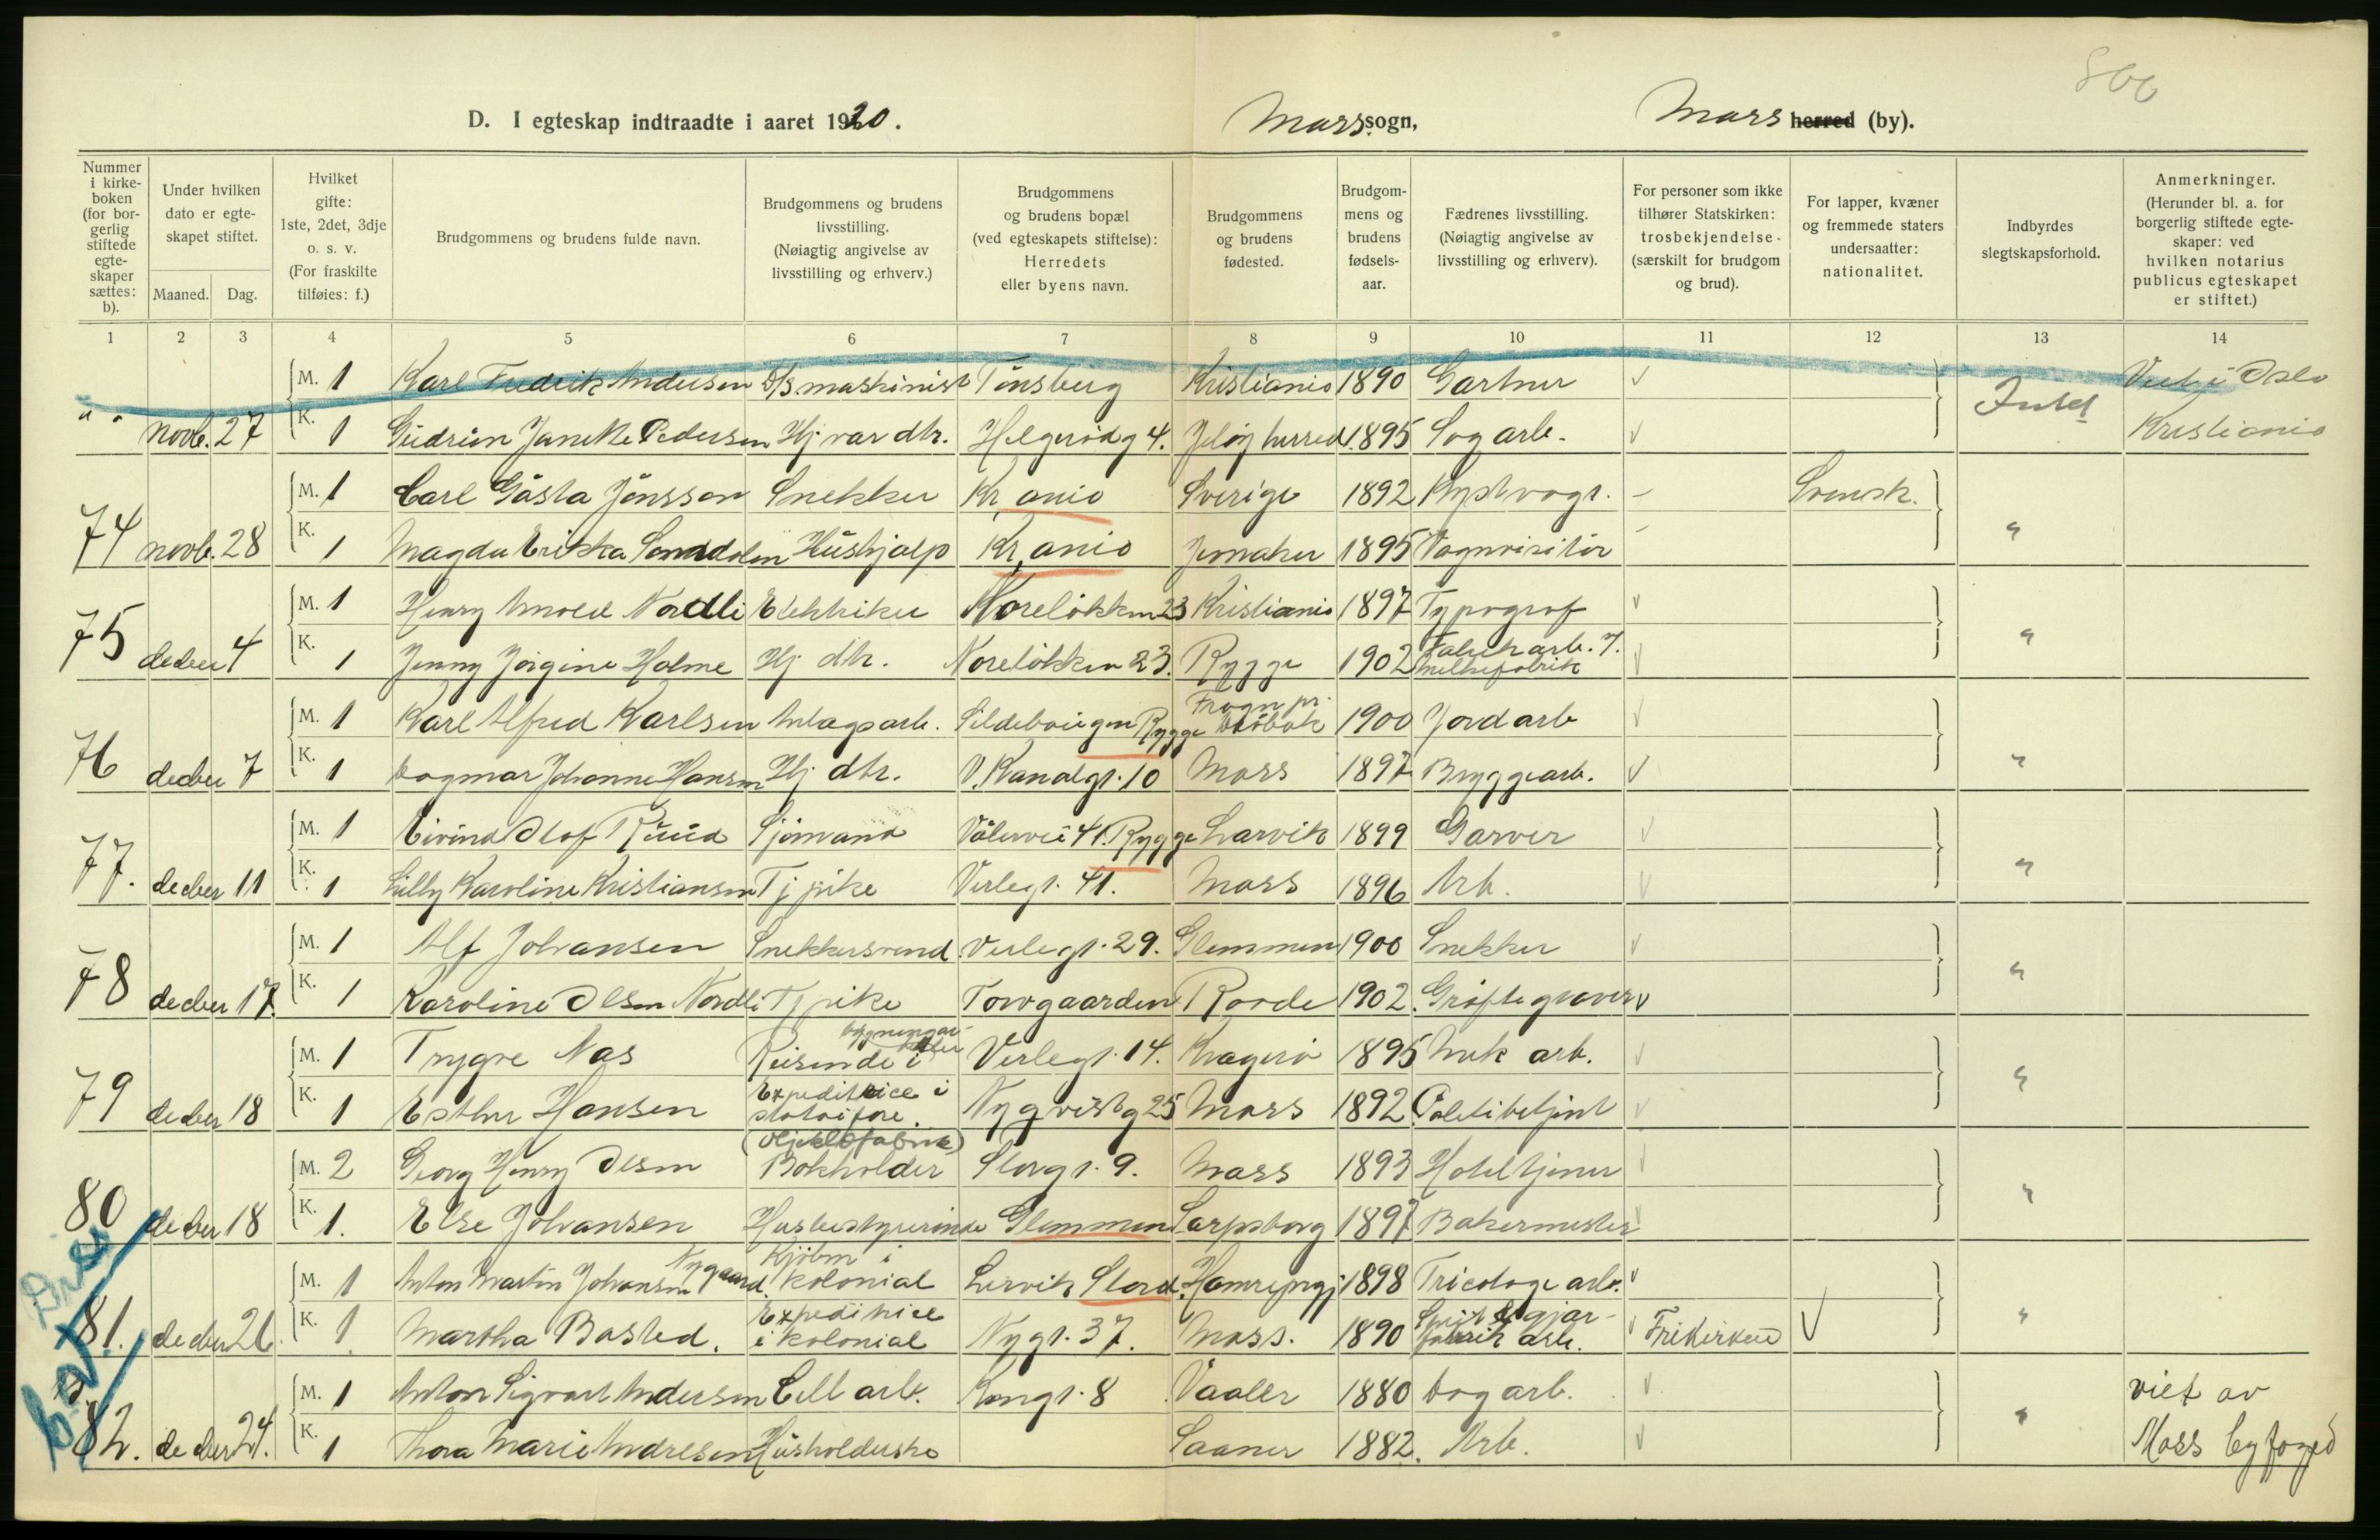 866
D. I egteskap indtraadte i aaret 1920. Moss sogn, Moss herred (by).
Nummer i kirkeboken (for borgerlig stiftede egteskaper sættes: b).
Under hvilken dato er egteskapet stiftet.
Maaned. Dag.
Hvilket gifte: 1ste, 2det, 3dje o. s. v. (For fraskilte tilføies: f.)
Brudgommens og brudens fulde navn.
Brudgommens og brudens livsstilling. (Nøiagtig angivelse av livsstilling og erhverv.)
Brudgommens og brudens bopæl (ved egteskapets stiftelse): Herredets eller byens navn.
Brudgommens og brudens fødested.
Brudgommens og brudens fødselsaar.
Fædrenes livsstilling. (Nøiagtig angivelse av livsstilling og erhverv).
For personer som ikke tilhører Statskirken: trosbekjendelse. (særskilt for brudgom og brud).
For lapper, kvæner og fremmede staters undersaatter: nationalitet.
Indbyrdes slegtskapsforhold.
Anmerkninger. (Herunder bl. a. for borgerlig stiftede egteskaper: ved hvilken notarius publicus egteskapet er stiftet.)
1 2 3 4 5 6 7 8 9 10 11 12 13 14
M. 1 Karl Fredrik Andersen D/s. maskinist Tønsberg Kristiania 1890 Gartner Viet i Oslo
" " novb. 27 K. 1 Gudrun Janekke Pedersen Hj var dtr. Helgerødg 4. Jeløy herred 1895 Sagarb. Kristiania
M. 1 Carl Gösta Jönsson Snekker Kr.ania Sverige 1892 Svensk.
74 novb. 28 K. 1 Magda Erikka Hushjælp Kr.ania Jevnaker 1895 Vognvisitør "
M. 1 Henry Arnold Nordli Elektriker Noreløkken 23 Kristiania 1897 Typograf
75 decber 4 K. 1 Jenny Jørgine Holme Hj dtr. Noreløkken 23. Rygge 1902 Fabrikarb. melkefabrik "
M. 1 Karl Alfred Karlsen Anlægsarb. Rygge Frogn pr. Drøbak 1900 Jordarb
76 decber 7 K. 1 Dagmar Johanne Hansen Hj dtr. V. Kanalgt. 10 Moss 1897 Bryggearb. "
M. 1 Eivind Olaf Ruud Sjømand Vålervei 41. Rygge Larvik 1899 Garver
77. decber 11 K. 1 Lilly Karoline Kristiansen Tj pike Verlegt. 41. Moss 1896 Arb. "
M. 1 Alf Johansen Snekkersvend Verlegt. 29. Glemmen 1900 Snekker
78 decber 17. K. 1 Karoline Olsen Nordli Tj pike Torvgaarden Raade 1902. Grøftegraver "
M. 1 Trygve Nas Reisende i bygningsartikler Verlegt. 14. Kragerø 1895 Mek arb.
79 decber 18 K. 1 Esther Hansen Expeditrice i Nygverstg 25 Moss 1892 Politibetjent "
M. 2 Georg Henry Olsen (Oljeklæfabrik) Bokholder Storgt. 9. Moss 1893 Hoteltjener
80 decber 18 K. 1. Else Johansen Husbestyrerinde Glemmen Sarpsborg 1897 Bakermester "
M. 1 Anton Martin Johansen Nygaard. Kjøbm i kolonial Lervik Stord. 1898 Tricotage arb.
81. decber 26. K. 1 Martha Basted. Expeditrice i kolonial Nygt. 37. Moss. 1890 Sprit & gjærfabrik arb. Frikirken "
M. 1 Anton Sigvart Andersen Cell arb. Kongt. 8 Vaaler 1880 Dagarb. viet av
82. decber 24. K. 1 Thora Marie Andresen Husholderske Saaner 1882. Arb. " Moss byfoged